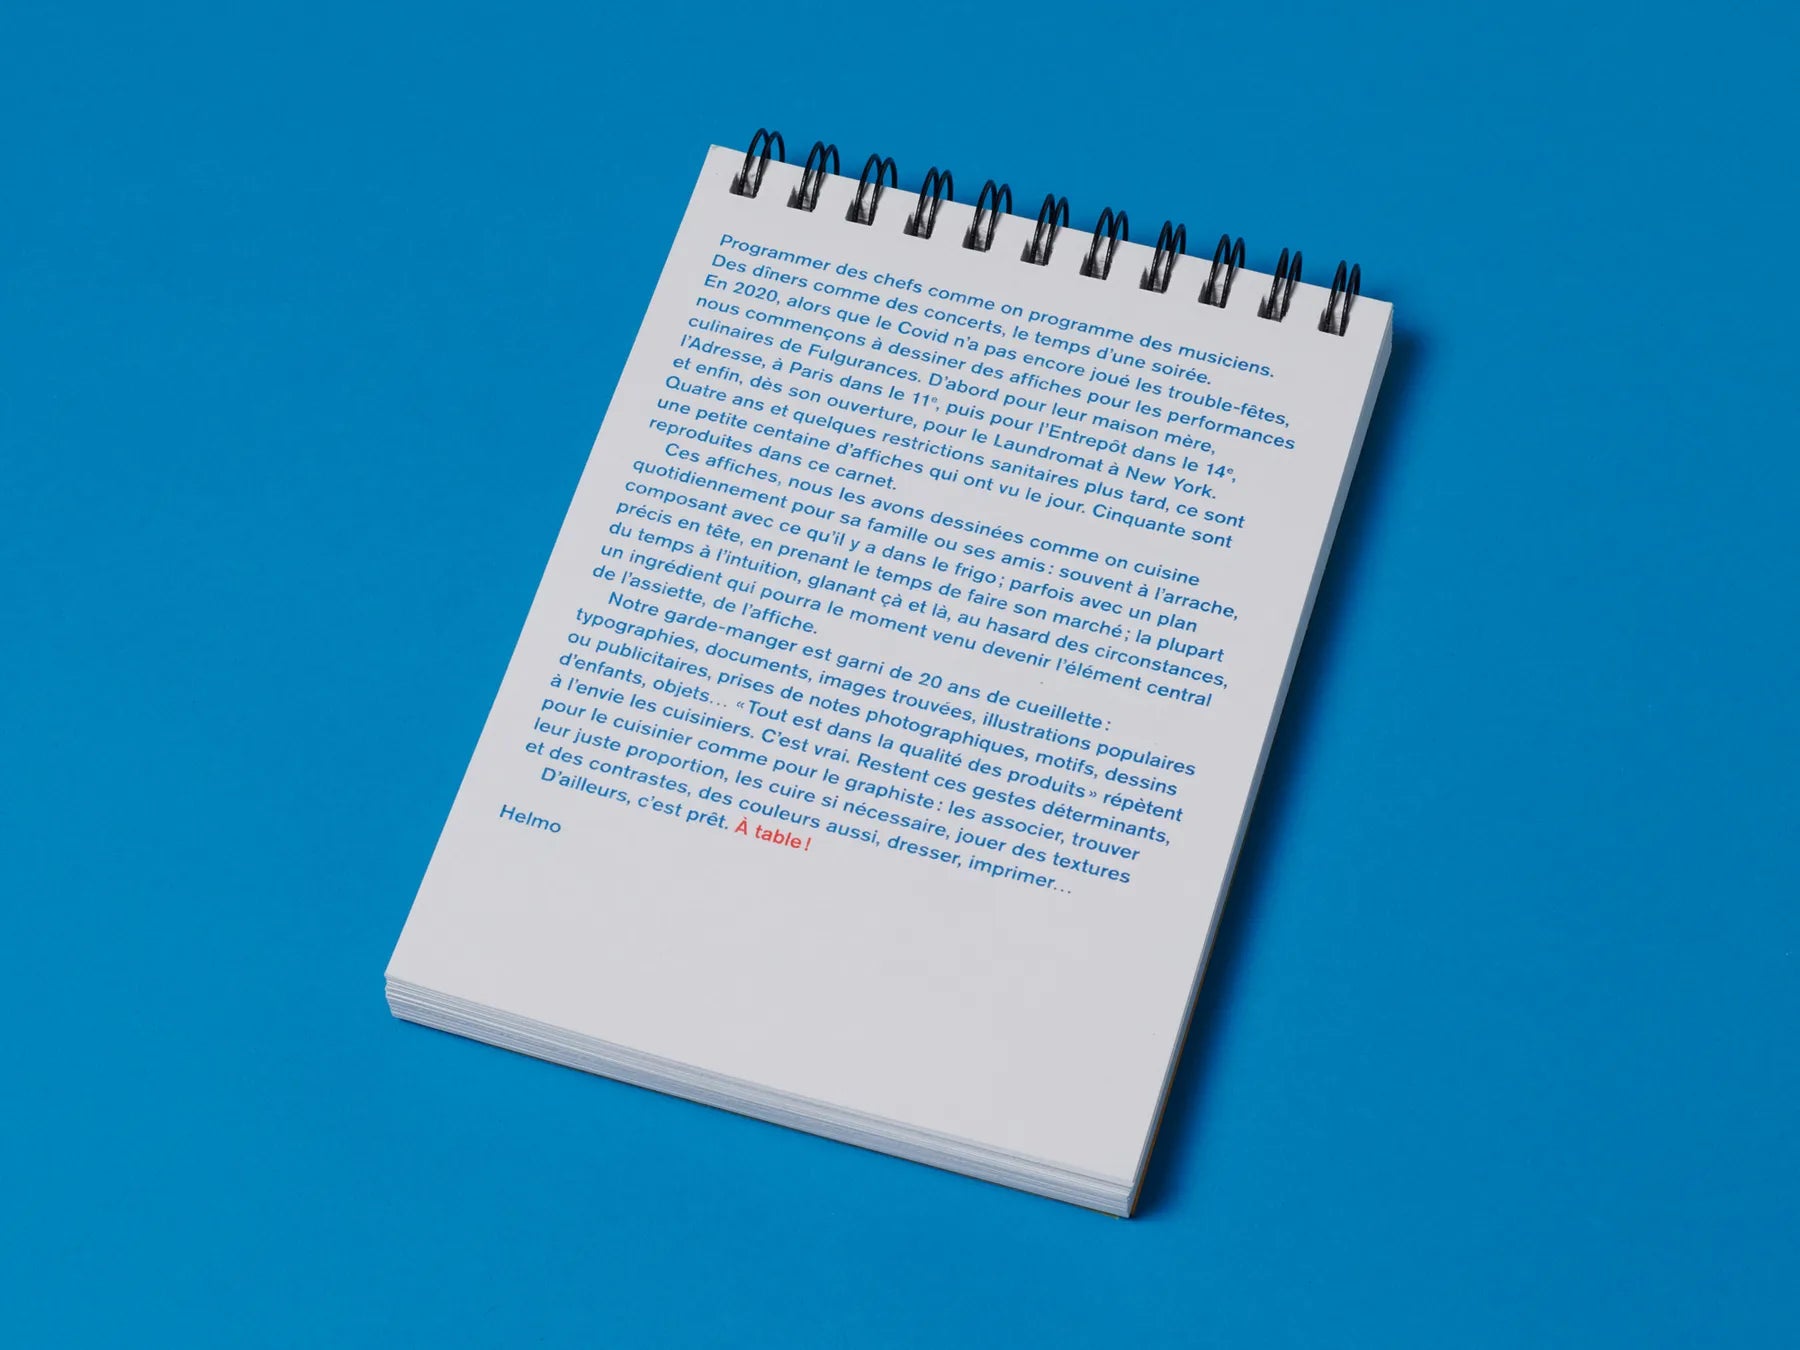 Programmer des chefs comme on programme des musiciens.
Des dîners comme des concerts, le temps d’une soirée.
En 2020, alors que le Covid n’a pas encore joué les trouble-fêtes,
nous commençons à dessiner des affiches pour les performances
culinaires de Fulgurances. D’abord pour leur maison mère,
l’Adresse, à Paris dans le 11e, puis pour l’Entrepôt dans le 14e,
et enfin, dès son ouverture, pour le Laundromat à New York.
Quatre ans et quelques restrictions sanitaires plus tard, ce sont
une petite centaine d’affiches qui ont vu le jour. Cinquante sont
reproduites dans ce carnet.
Ces affiches, nous les avons dessinées comme on cuisine
quotidiennement pour sa famille ou ses amis : souvent à l’arrache,
composant avec ce qu’il y a dans le frigo ; parfois avec un plan
précis en tête, en prenant le temps de faire son marché ; la plupart
du temps à l’intuition, glanant çà et là, au hasard des circonstances,
un ingrédient qui pourra le moment venu devenir l’élément central
de l’assiette, de l’affiche.
Notre garde-manger est garni de 20 ans de cueillette :
typographies, documents, images trouvées, illustrations populaires
ou publicitaires, prises de notes photographiques, motifs, dessins
d’enfants, objets… « Tout est dans la qualité des produits » répètent
à l’envie les cuisiniers. C’est vrai. Restent ces gestes déterminants,
pour le cuisinier comme pour le graphiste : les associer, trouver
leur juste proportion, les cuire si nécessaire, jouer des textures
et des contrastes, des couleurs aussi, dresser, imprimer…
D’ailleurs, c’est prêt. À table !
Helmo